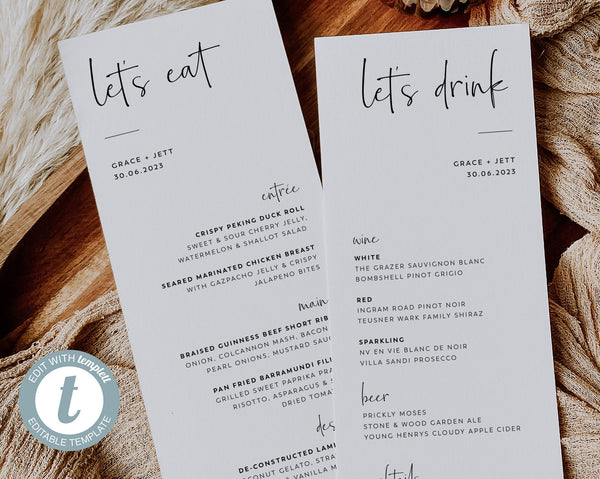 let's eat
GRACE + JETT
30.06.2023
entrée
CRISPY PEKING DUCK ROLL
SWEET & SOUR CHERRY JELLY,
WATERMELON & SHALLOT SALAD
SEARED MARINATED CHICKEN BREAST
WITH GAZPACHO JELLY & CRISPY
JALAPENO BITES
main
BRAISED GUINNESS BEEF SHORT RIB
ONION, COLCANNON MASH, BACON
PEARL ONIONS, MUSTARD
PAN FRIED BARRAMUNDI
GRILLED SWEET PAPRIKA
RISOTTO, ASPARAGUS &
DRIED
DE-CONSTRUCTED
COCONUT GELATO,
let's drink
GRACE + JETT
30.06.2023
wine
WHITE
THE GRAZER SAUVIGNON BLANC
BOMBSHELL PINOT GRIGIO
RED
INGRAM ROAD PINOT NOIR
TEUSNER WARK FAMILY SHIRAZ
SPARKLING
NV EN VIE BLANC DE NOIR
VILLA SANDI PROSECCO
beer
PRICKLY MOSES
STONE & WOOD GARDEN ALE
YOUNG HENRYS CLOUDY APPLE CIDER
EDIT WITH templett
t
EDITABLE TEMPLATE